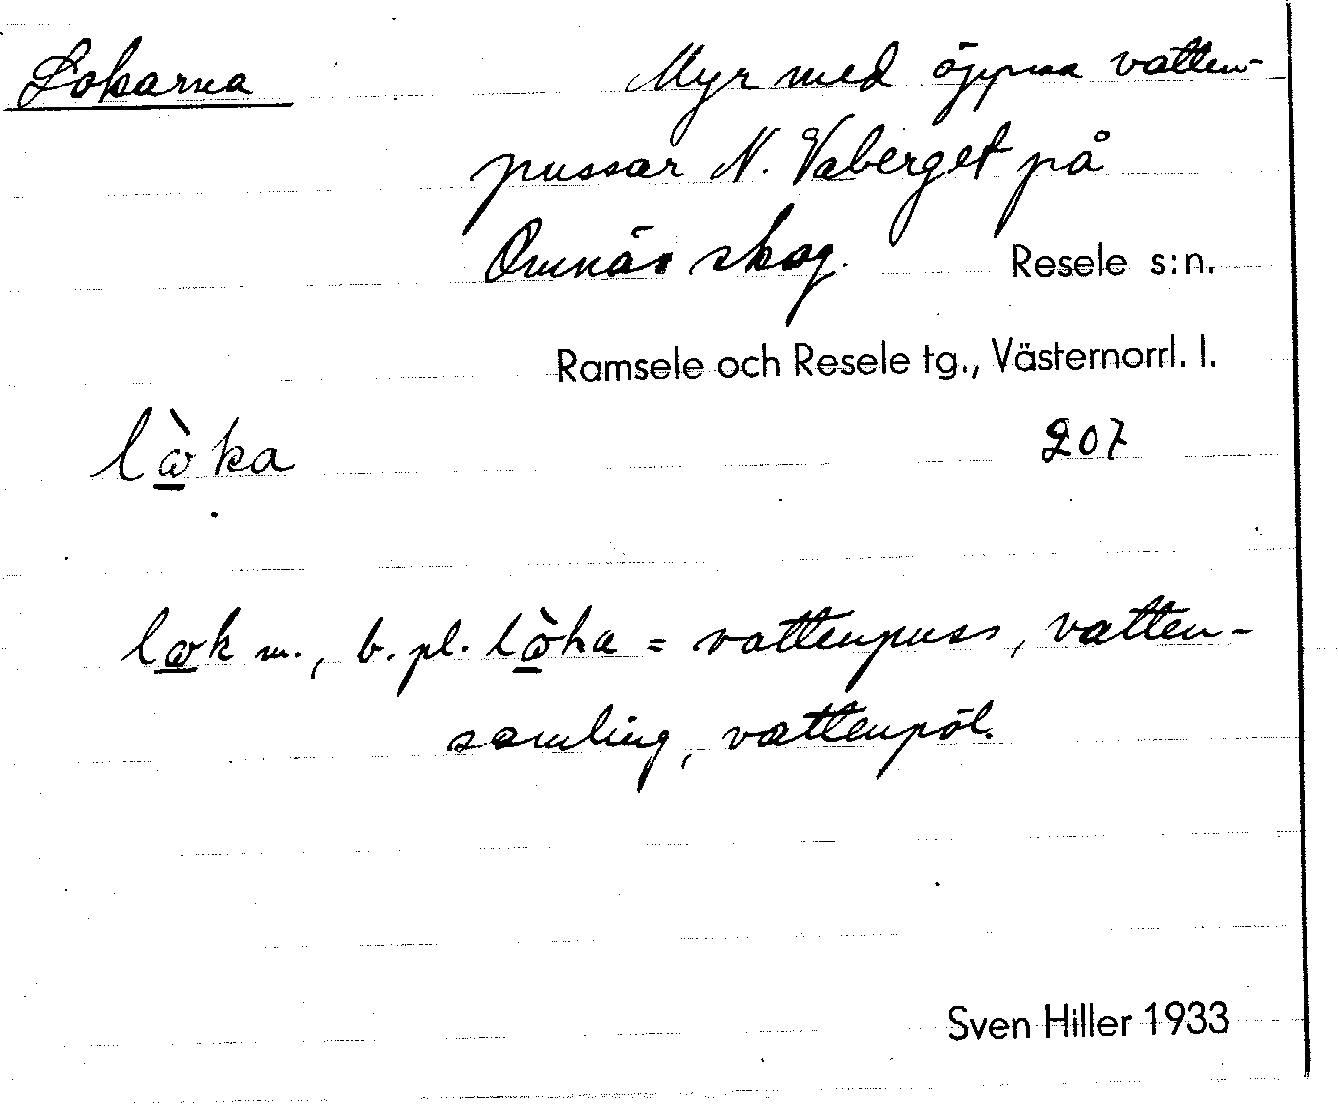 Lokarna
Myr med öppna vatten-
pussar N. Vaberget på
Omnäs skog. Resele s:n.
Ramsele och Resele tg., Västernorrl. l.
207
m., b. pl. = vattenpuss, vatten-
samling, vattenpöl.
Sven Hiller 1933